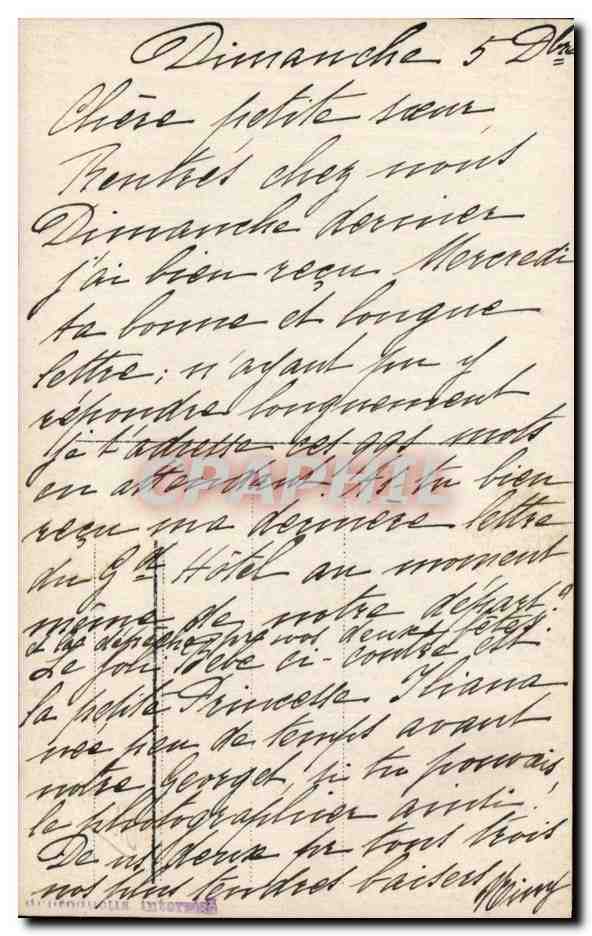 Dimanche 5 Dbre
Chère petite sœur,
Rentrés chez nous
Dimanche dernier
j'ai bien reçu Mercredi
ta bonne et longue
lettre; n'ayant pu y
répondre longuement
je t'adresse ces qqs mots
en attendant. As tu bien
reçu ma dernière lettre
du Gd Hôtel au moment
même de notre départ?
& la dépêche pre vos deux fêtes.
Le joli Bébé ci-contre est
la petite Princesse Iliana
née peu de temps avant
notre Georget, si tu pouvais
le photographier ainsi!
De ns deux pr tous trois
nos plus tendres baisers
CPARHIL
reproductia interzisă